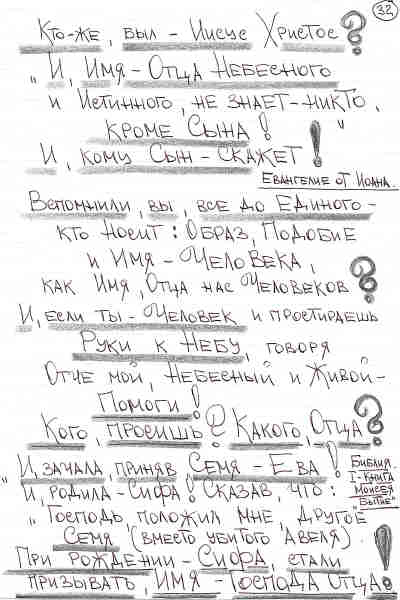 32
Кто-же, был - Иисус Христос?
"И, Имя - Отца Небесного
и Истинного, не знает - никто,
кроме Сына! "
И, кому Сын - скажет!
Евангелие от Иоана.
Вспомнили, вы, все до Единого -
кто носит: Образ, Подобие
и Имя - Человека,
как Имя, Отца нас Человеков?
И, если ты - Человек и простираешь
Руки к Небу, говоря
Отче мой, Небесный и Живой -
Помоги!
Кого, просишь? Какого, Отца?
"И, зачала, приняв Семя - Ева!
И, родила - Сифа! Сказав, что:
Библия.
1-Книга
Моисея
"Бытие"
"Господь положил мне, другое
Семя, (вместо убитого Авеля).
При рождении - Сифа, стали
призывать, Имя - Господа Отца!